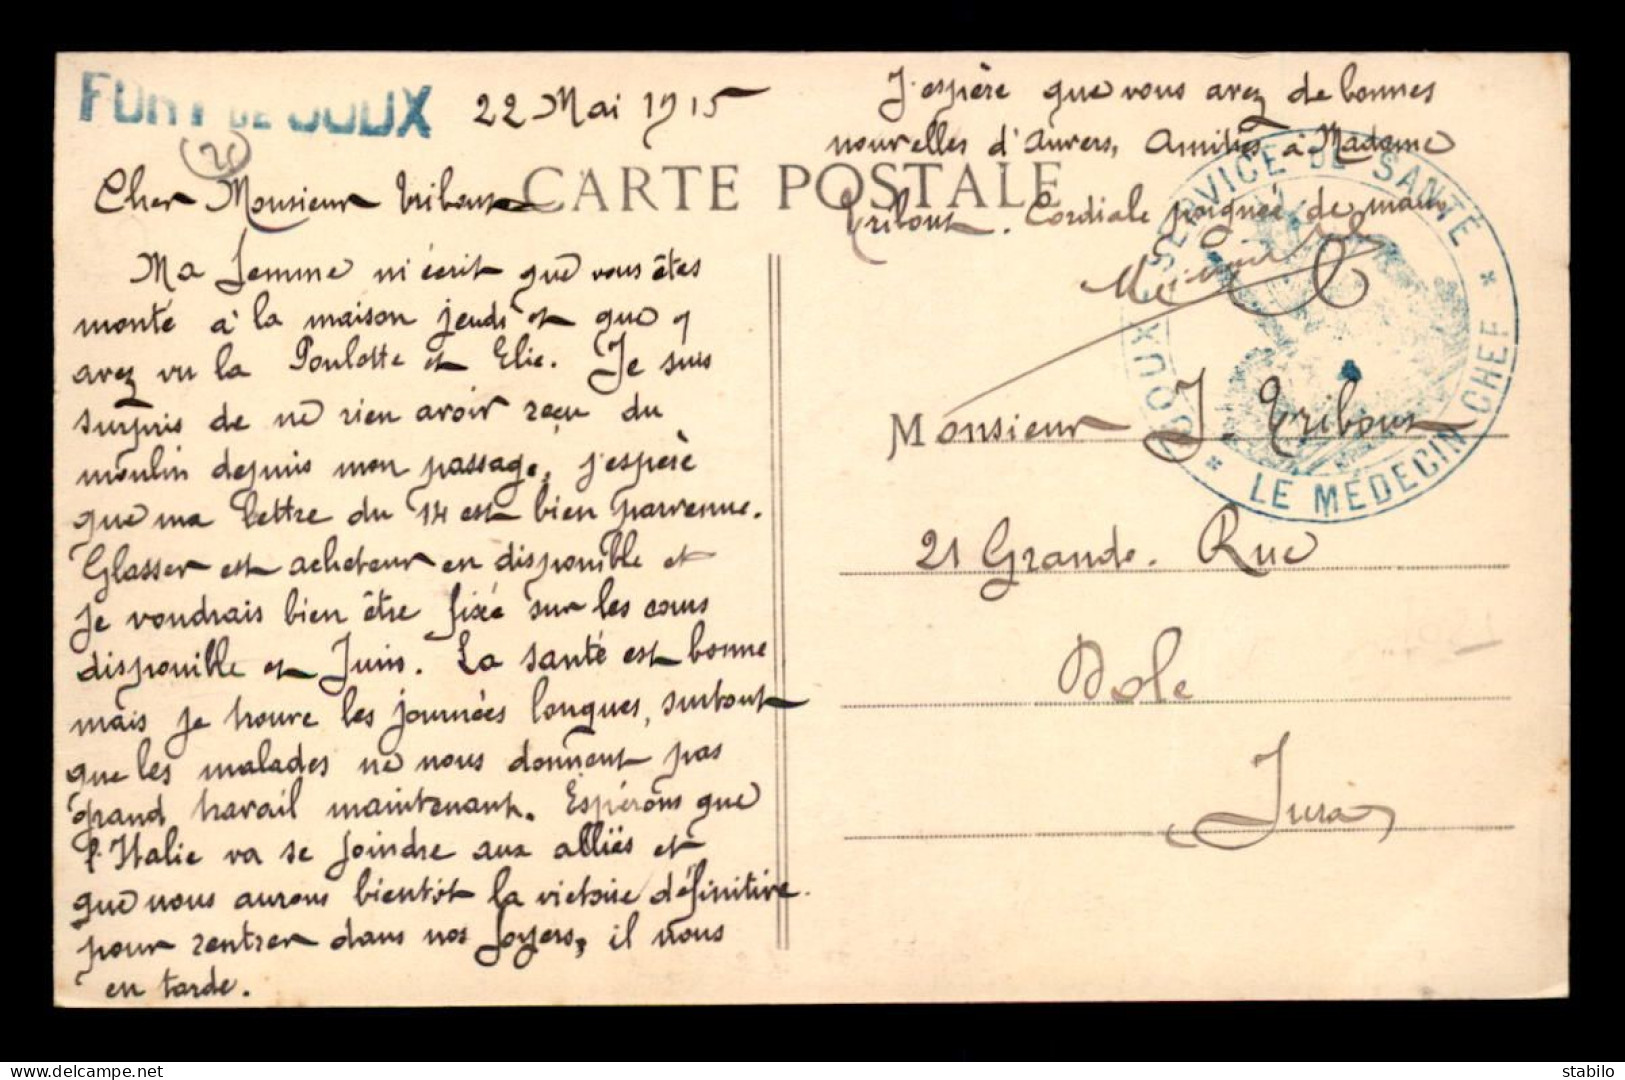 FORT DE JOUX 22 Mai 1915
CARTE POSTALE
Cher Monsieur Tribout
Ma femme m'écrit que vous êtes
monté à la maison jeudi et que y
avez vu la Poulotte et Elie. Je suis
surpris de ne rien avoir reçu du
moulin depuis mon passage, j'espère
que ma lettre du 14 est bien parvenue.
Glasser est acheteur en disponible et
je voudrais bien être fixé sur les cours
disponible et Juin. La santé est bonne
mais je trouve les journées longues, surtout
que les malades ne nous donnent pas
grand travail maintenant. Espérons que
l'Italie va se joindre aux alliés et
que nous aurons bientôt la victoire définitive
pour rentrer dans nos foyers, il nous
en tarde.
J'espère que vous avez de bonnes
nouvelles d'Anvers, Amitiés à Madame
Tribout. Cordiale poignée de main
SERVICE DE SANTÉ
* LE MÉDECIN CHEF *
JOUX
Monsieur J. Tribout
21 Grande Rue
Dole
Jura
delcampe.net
stabilo